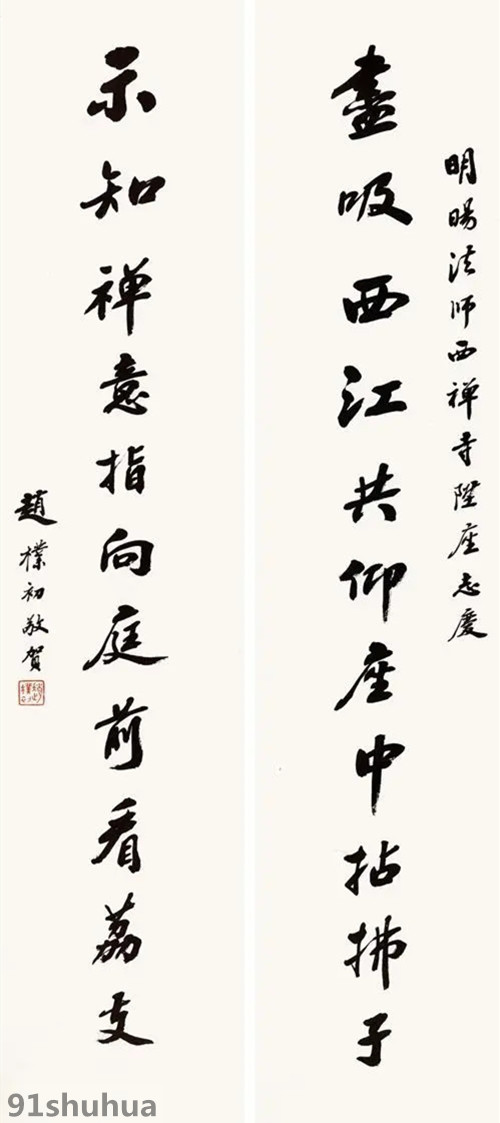 明暘法师西禅寺陞座志慶
盡吸西江共仰座中拈拂子
示知禅意指向庭前看荔支
趙樸初敬賀
91shuhua